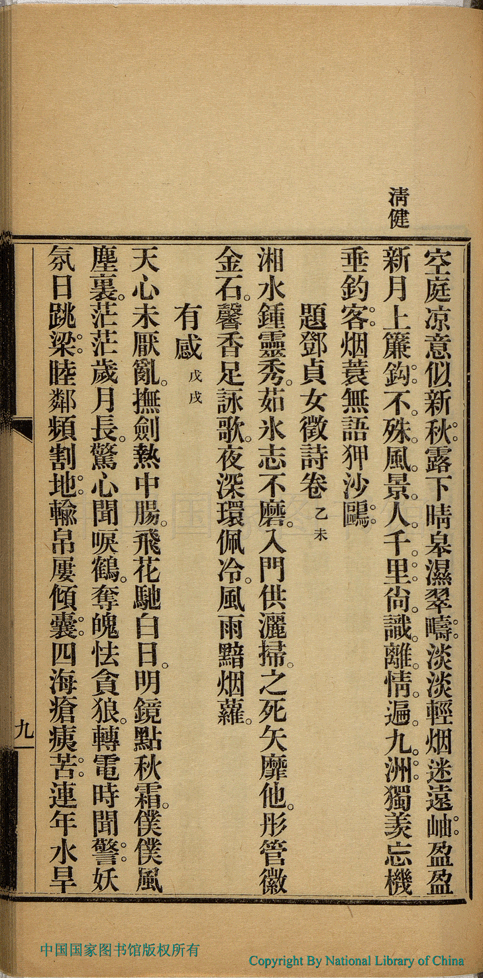 清健
空庭凉意似新秋。露下晴皋濕翠疇。淡淡輕烟迷遠岫。盈盈
新月上簾鈎。不殊風景人千里。尙識離情遍九洲。獨羨忘機
垂釣客。烟蓑無語狎沙鷗。
題鄧貞女徵詩卷 乙未
湘水鍾靈秀。茹氷志不磨。入門供灑掃。之死矢靡他。彤管徽
金石。馨香足詠歌。夜深環佩冷。風雨黯烟蘿。
有感 戊戌
天心未厭亂。撫劍熱中腸。飛花馳白日。明鏡點秋霜。僕僕風
塵裏。茫茫歲月長。驚心聞唳鶴。奪魄怯貪狼。轉電時聞警。妖
氛日跳梁。睦鄰頻割地。輸帛屢傾囊。四海瘡痍苦。連年水旱
九
中国国家图书馆版权所有
Copyright By National Library of China